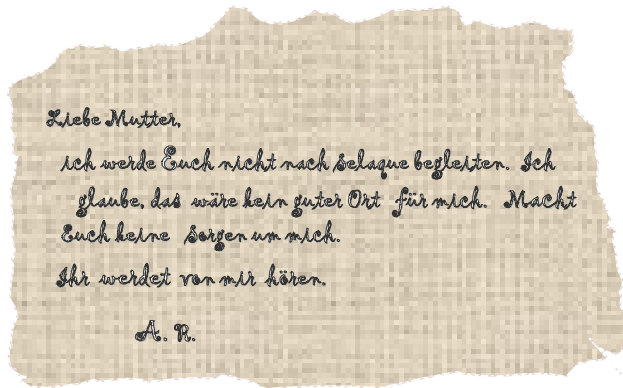 Liebe Mutter,
ich werde Euch nicht nach Selaque begleiten. Ich
glaube, das wäre kein guter Ort für mich. Macht
Euch keine Sorgen um mich.
Ihr werdet von mir hören.
A. R.